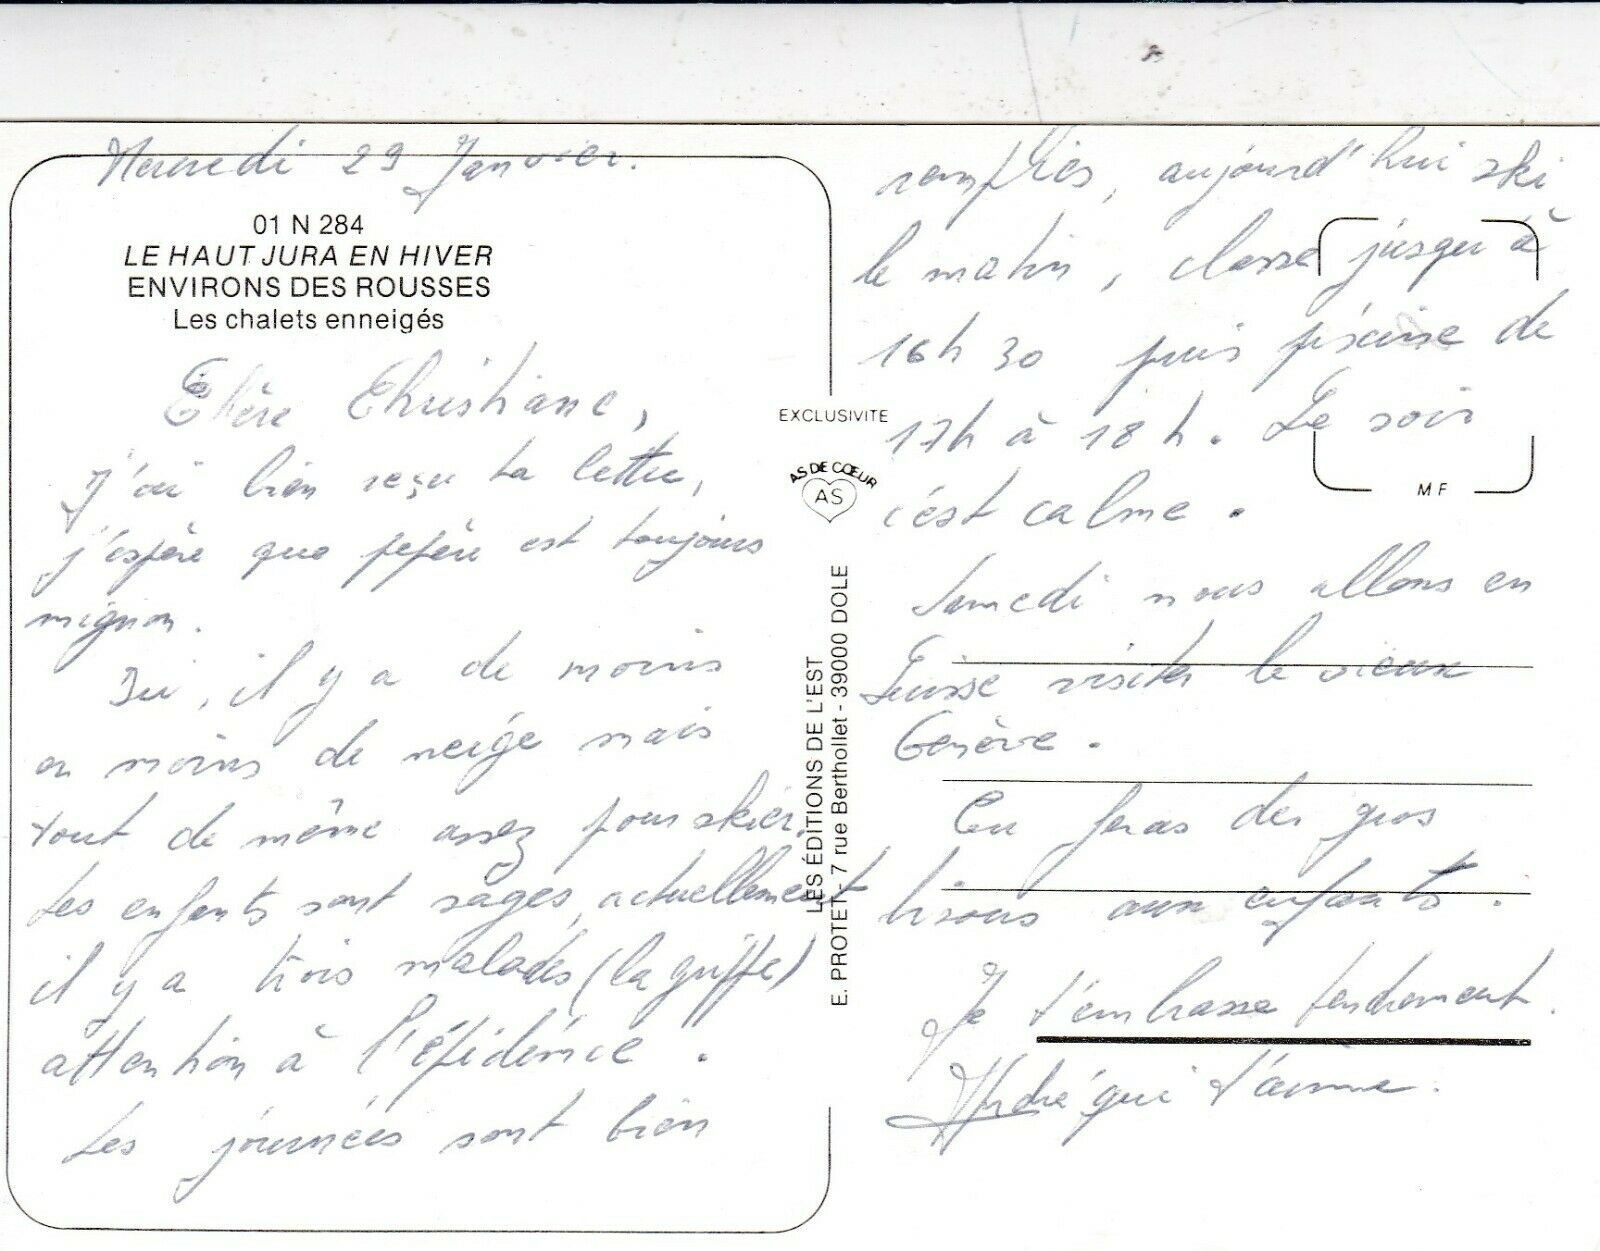 Mercredi 29 Janvier.
01 N 284
LE HAUT JURA EN HIVER
ENVIRONS DES ROUSSES
Les chalets enneigés
Chère Christiane,
J'ai bien reçu ta lettre,
j'espère que pepère est toujours
mignon.
Ici, il y a de moins
en moins de neige mais
tout de même assez pour skier.
Les enfants sont sages, actuellement
il y a trois malades (la grippe)
attention à l'épidémie.
Les journées sont bien
EXCLUSIVITE
AS DE CŒUR
AS
LES ÉDITIONS DE L'EST
E. PROTET - 7 rue Berthollet - 39000 DOLE
remplies, aujourd'hui ski
le matin, classe jusqu'à
16h 30 puis piscine de
17h à 18h. Le soir
c'est calme.
MF
Samedi nous allons en
Suisse visiter le vieux
Genève.
Tu feras des gros
bisous aux enfants.
Je t'embrasse tendrement.
André qui t'aime.